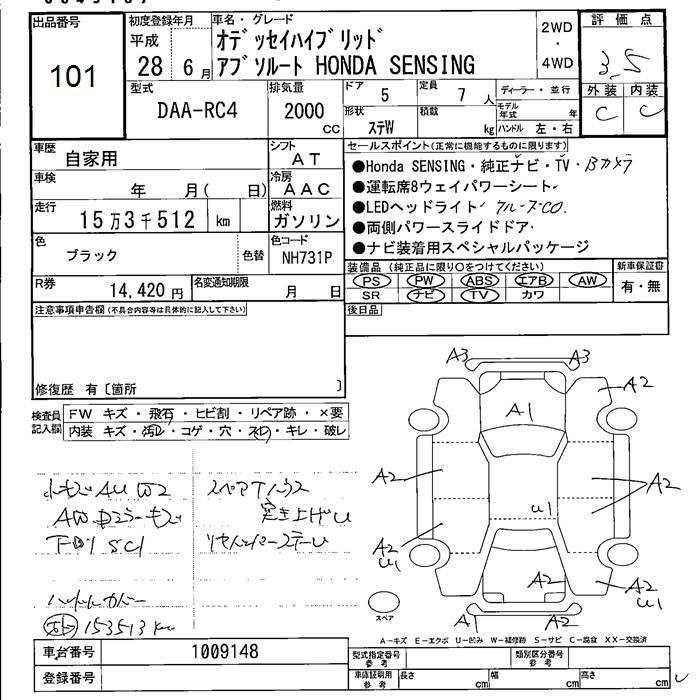 出品番号
101
初度登録年月
平成
28 6月
車名・グレード
オデッセイハイブリッド
アブソルート HONDA SENSING
2WD
・
4WD
評価点
3.5
外装 内装
C C
型式
DAA-RC4
排気量
2000
CC
ドア
5
定員
7人
ディーラー・並行
形状
ステW
積載
kg
モデル年式 年
ハンドル 左・右
車歴
自家用
シフト
AT
車検
年 月( 日)
冷房
AAC
走行
15万3千512 km
燃料
ガソリン
色
ブラック
色替
色コード
NH731P
R券
14,420円
名変通知期限
月 日
セールスポイント(正常に機能するものに限ります)
●Honda SENSING・純正ナビ・TV・Bカメラ
●運転席8ウェイパワーシート
●LEDヘッドライト
●両側パワースライドドア
●ナビ装着用スペシャルパッケージ
装備品(純正品に限り○をつけてください)
PS PW ABS エアB AW
SR ナビ TV カワ
新車保証書
有・無
後日品
注意事項申告欄(不具合内容等は具体的に記入して下さい)
修復歴 有〔箇所 〕
検査員記入欄
FW キズ・飛石・ヒビ割・リペア跡・×要
内装 キズ・汚れ・コゲ・穴・スレ・キレ・破レ
A3 A3
A2
A1
A2
A2
U1
A2
U1
A2
A2
U1
A1 A2
スペア
スペアTハウス
突き上げU
ハンドルカバー
153513km
A-キズ E-エクボ U-凹み W-補修跡 S-サビ C-腐食 XX-交換済
車台番号
1009148
登録番号
型式指定番号
参考
類別区分番号
参考
車庫証明用
参考
長さ cm
幅 cm
高さ cm